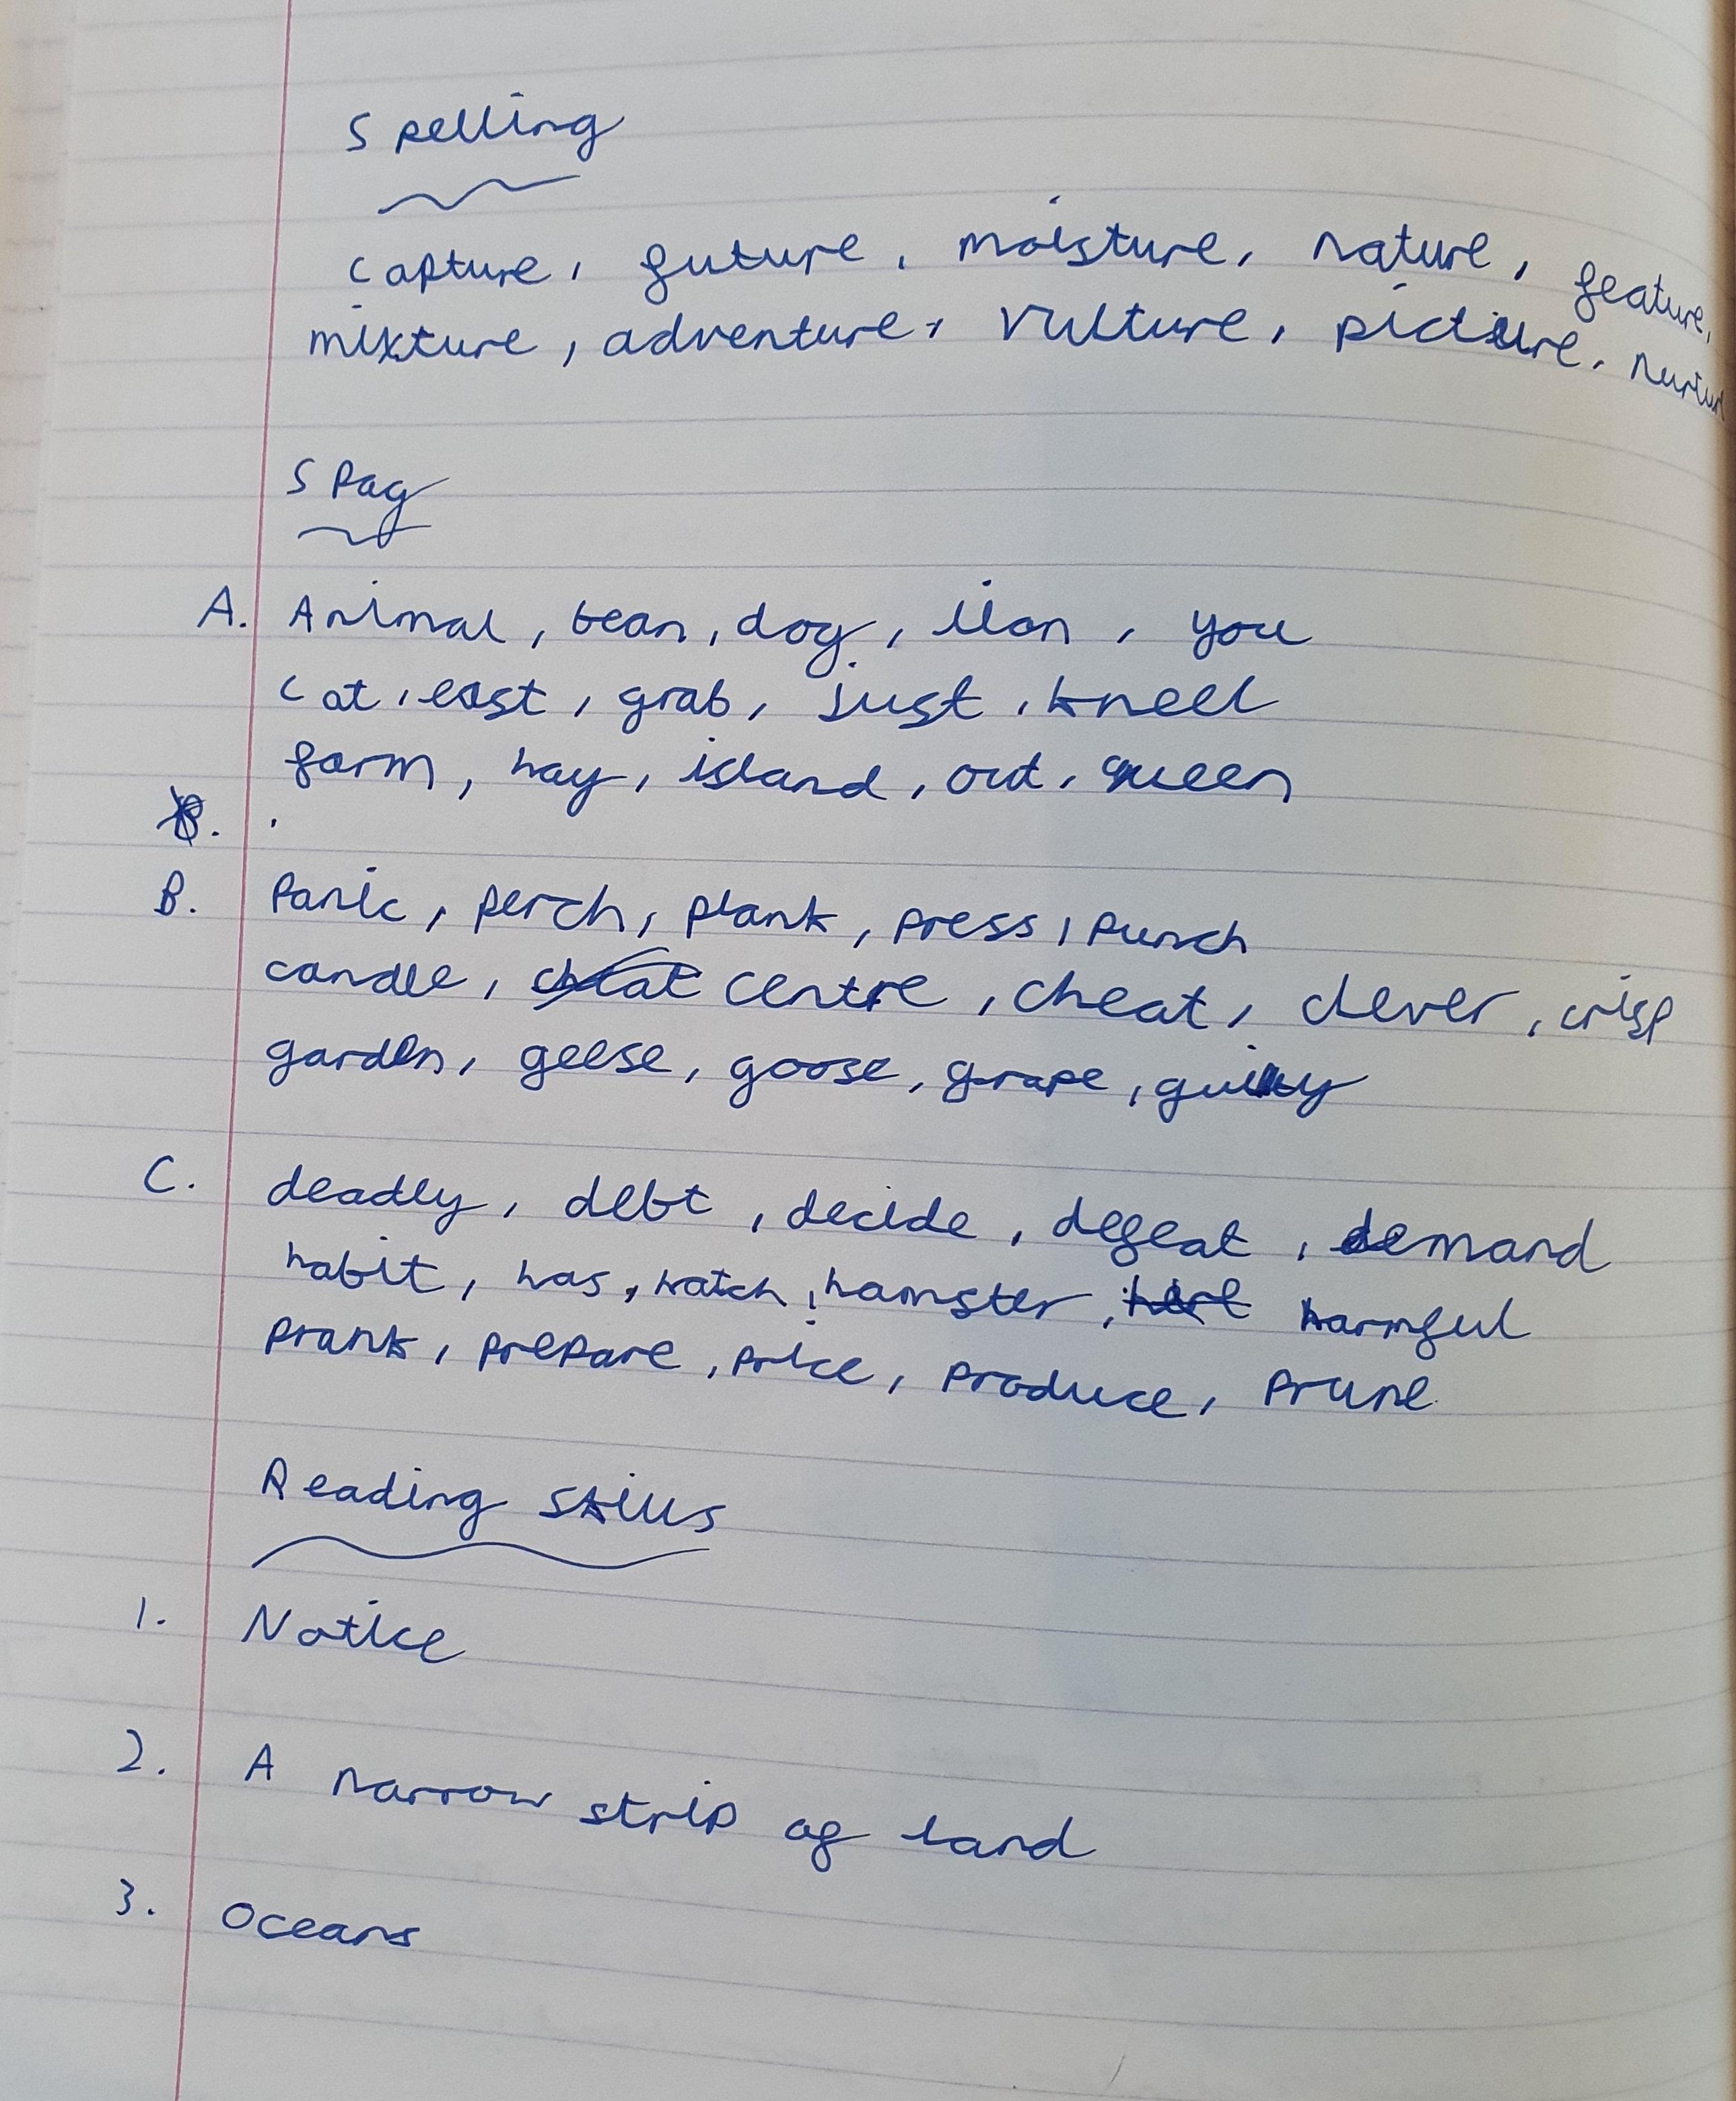 Spelling
capture, future, moisture, nature, feature,
mixture, adventure, vulture, picture, nurture
SPag
A. Animal, bean, dog, lion, you
cat, east, grab, just, kneel
farm, hay, island, out, queen
B.
B. Panic, perch, plank, press, punch
candle, cheat centre, cheat, clever, crisp
garden, geese, goose, grape, guilty
C. deadly, debt, decide, defeat, demand
habit, has, hatch, hamster, harmful
prank, prepare, price, produce, prune
Reading skills
1. Notice
2. A narrow strip of land
3. Oceans